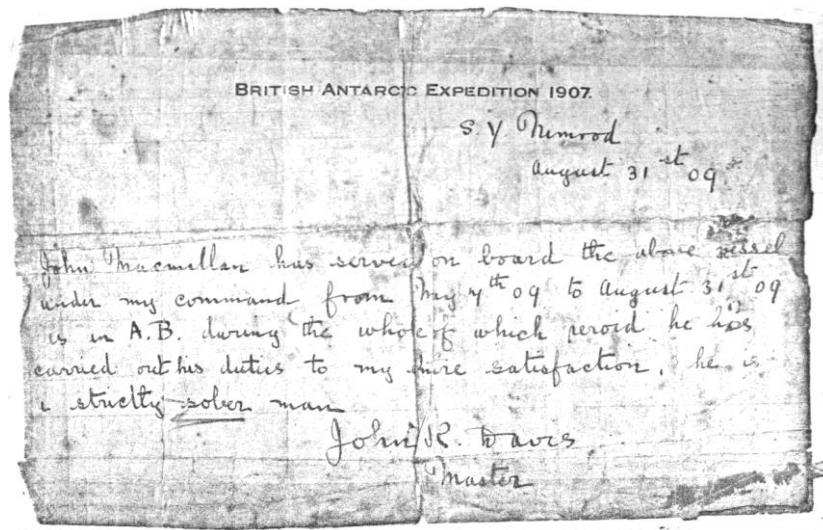 BRITISH ANTARCTIC EXPEDITION 1907.
S. Y. Nimrod
August 31st 09
John Macmillan has served on board the above vessel
under my command from May 7th 09 to August 31st 09
is in A.B. during the whole of which peroid he has
carried out his duties to my satisfaction. he is
a strictly sober man
John K. Davis
Master